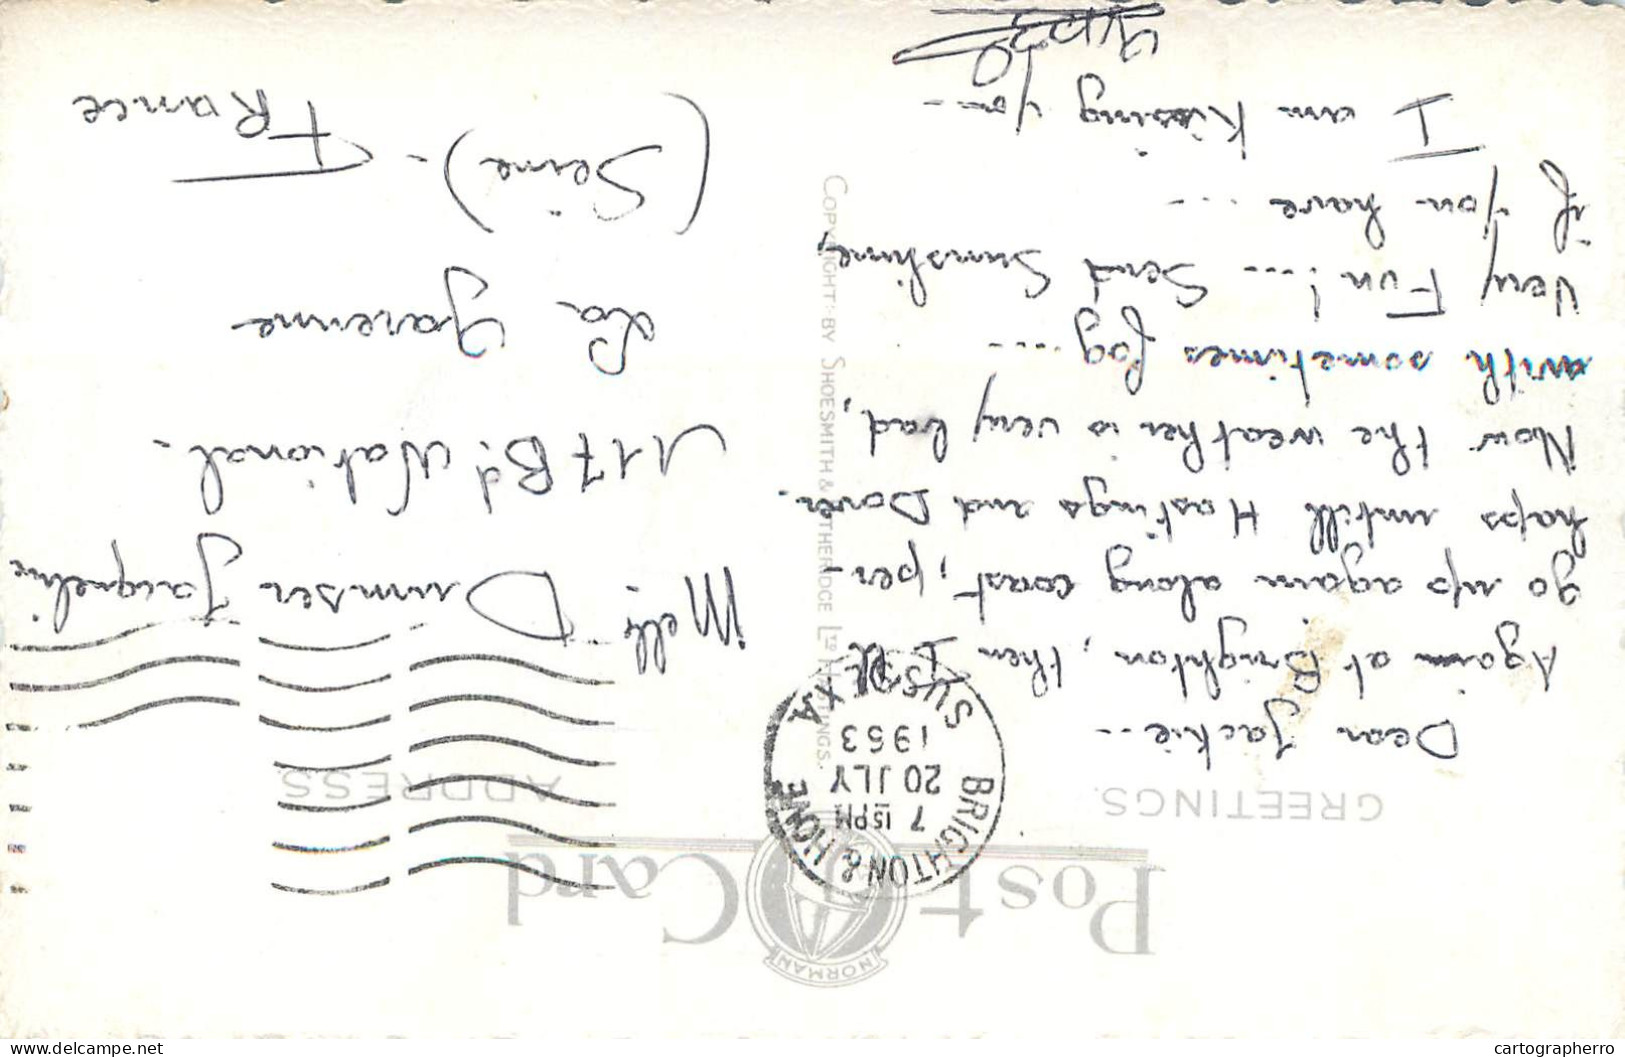 Post Card
NORMAN
GREETINGS.
ADDRESS.
BRIGHTON & HOVE
7 15 PM
20 JLY
1953
SUSSEX A
Dear Jackie...
Again at Brighton, then I'll
go up again along coast, per-
haps untill Hastings and Dover.
Now the weather is very bad,
with sometimes fog....
Very Fun! ... Send Sunshine,
if you have ...
I am Kissing you -
COPYRIGHT: BY SHOESMITH & ETHERIDGE LTD HASTINGS.
Melle Drumser Jacqueline
117 Bd. National -
La Garenne
(Seine) -
France
cartographerro